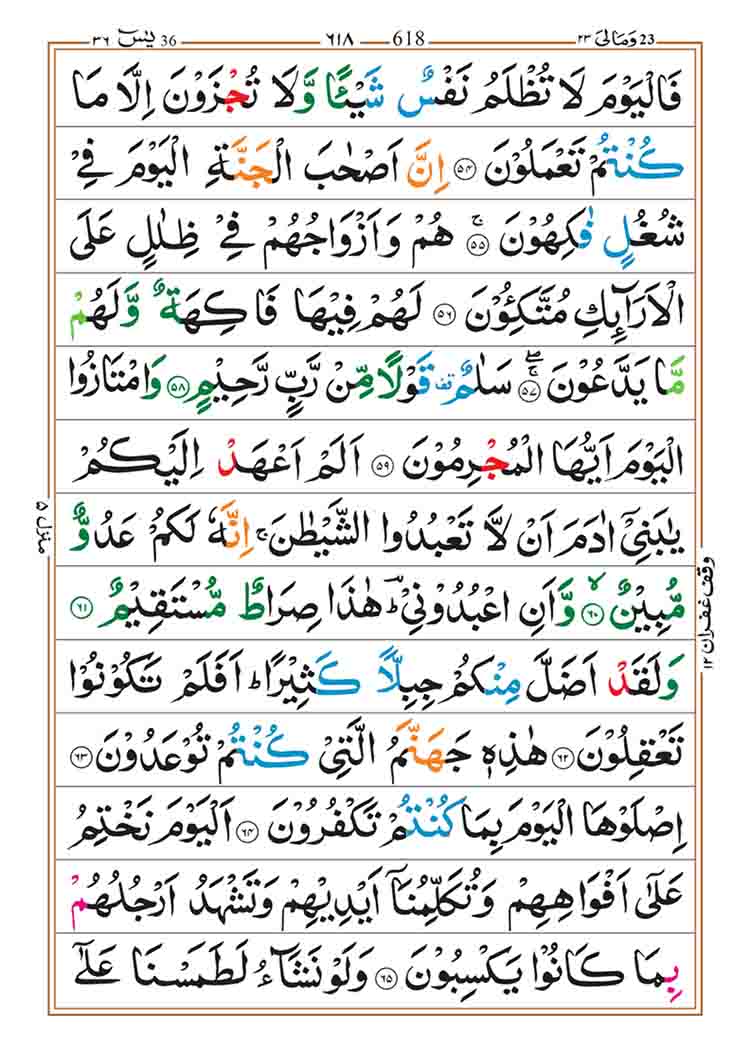 36 یٰسٓ ٣٦ 618 ٦١٨ 23 وَمَالِیَ ٢٣
فَالْیَوْمَ لَا تُظْلَمُ نَفْسٌ شَیْـًٔا وَّلَا تُجْزَوْنَ اِلَّا مَا
كُنْتُمْ تَعْمَلُوْنَ ٥٤ اِنَّ اَصْحٰبَ الْجَنَّةِ الْیَوْمَ فِیْ
شُغُلٍ فٰكِهُوْنَ ۚ ٥٥ هُمْ وَاَزْوَاجُهُمْ فِیْ ظِلٰلٍ عَلَی
الْاَرَآىِٕكِ مُتَّكِـُٔوْنَ ٥٦ لَهُمْ فِیْهَا فَاكِهَةٌ وَّلَهُمْ
مَّا یَدَّعُوْنَ ۚۖ ٥٧ سَلٰمٌ قف قَوْلًا مِّنْ رَّبٍّ رَّحِیْمٍ ٥٨ وَامْتَازُوا
الْیَوْمَ اَیُّهَا الْمُجْرِمُوْنَ ٥٩ اَلَمْ اَعْهَدْ اِلَیْكُمْ
یٰبَنِیْۤ اٰدَمَ اَنْ لَّا تَعْبُدُوا الشَّیْطٰنَ ۚ اِنَّهٗ لَكُمْ عَدُوٌّ
مُّبِیْنٌ ۙ ٦٠ وَّاَنِ اعْبُدُوْنِیْ ؔؕ هٰذَا صِرَاطٌ مُّسْتَقِیْمٌ ٦١
وَلَقَدْ اَضَلَّ مِنْكُمْ جِبِلًّا كَثِیْرًا ؕ اَفَلَمْ تَكُوْنُوْا
تَعْقِلُوْنَ ٦٢ هٰذِهٖ جَهَنَّمُ الَّتِیْ كُنْتُمْ تُوْعَدُوْنَ ٦٣
اِصْلَوْهَا الْیَوْمَ بِمَا كُنْتُمْ تَكْفُرُوْنَ ٦٤ اَلْیَوْمَ نَخْتِمُ
عَلٰۤی اَفْوَاهِهِمْ وَتُكَلِّمُنَاۤ اَیْدِیْهِمْ وَتَشْهَدُ اَرْجُلُهُمْ
بِمَا كَانُوْا یَكْسِبُوْنَ ٦٥ وَلَوْ نَشَآءُ لَطَمَسْنَا عَلٰۤی
منزل ۵
وقف غفران ١٢